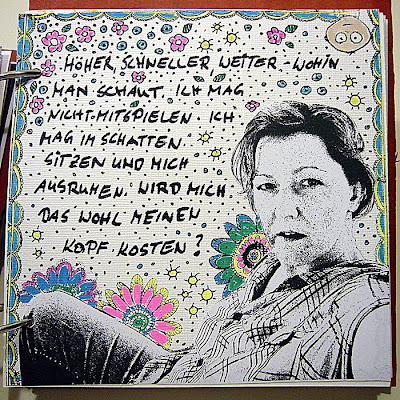 HÖHER, SCHNELLER, WEITER - WOHIN
MAN SCHAUT. ICH MAG
NICHT-MITSPIELEN. ICH
MAG IM SCHATTEN
SITZEN UND MICH
AUSRUHEN. WIRD MICH
DAS WOHL MEINEN
KOPF KOSTEN?